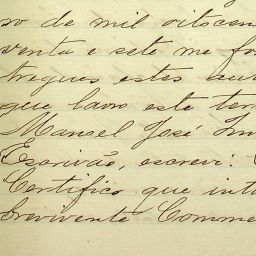 ro de mil oitocen
venta e sete me fo
tregues estes au
que lavro este ter
Manoel José
Escrivão, escrevi:
Certifico que int
brevivente Comme